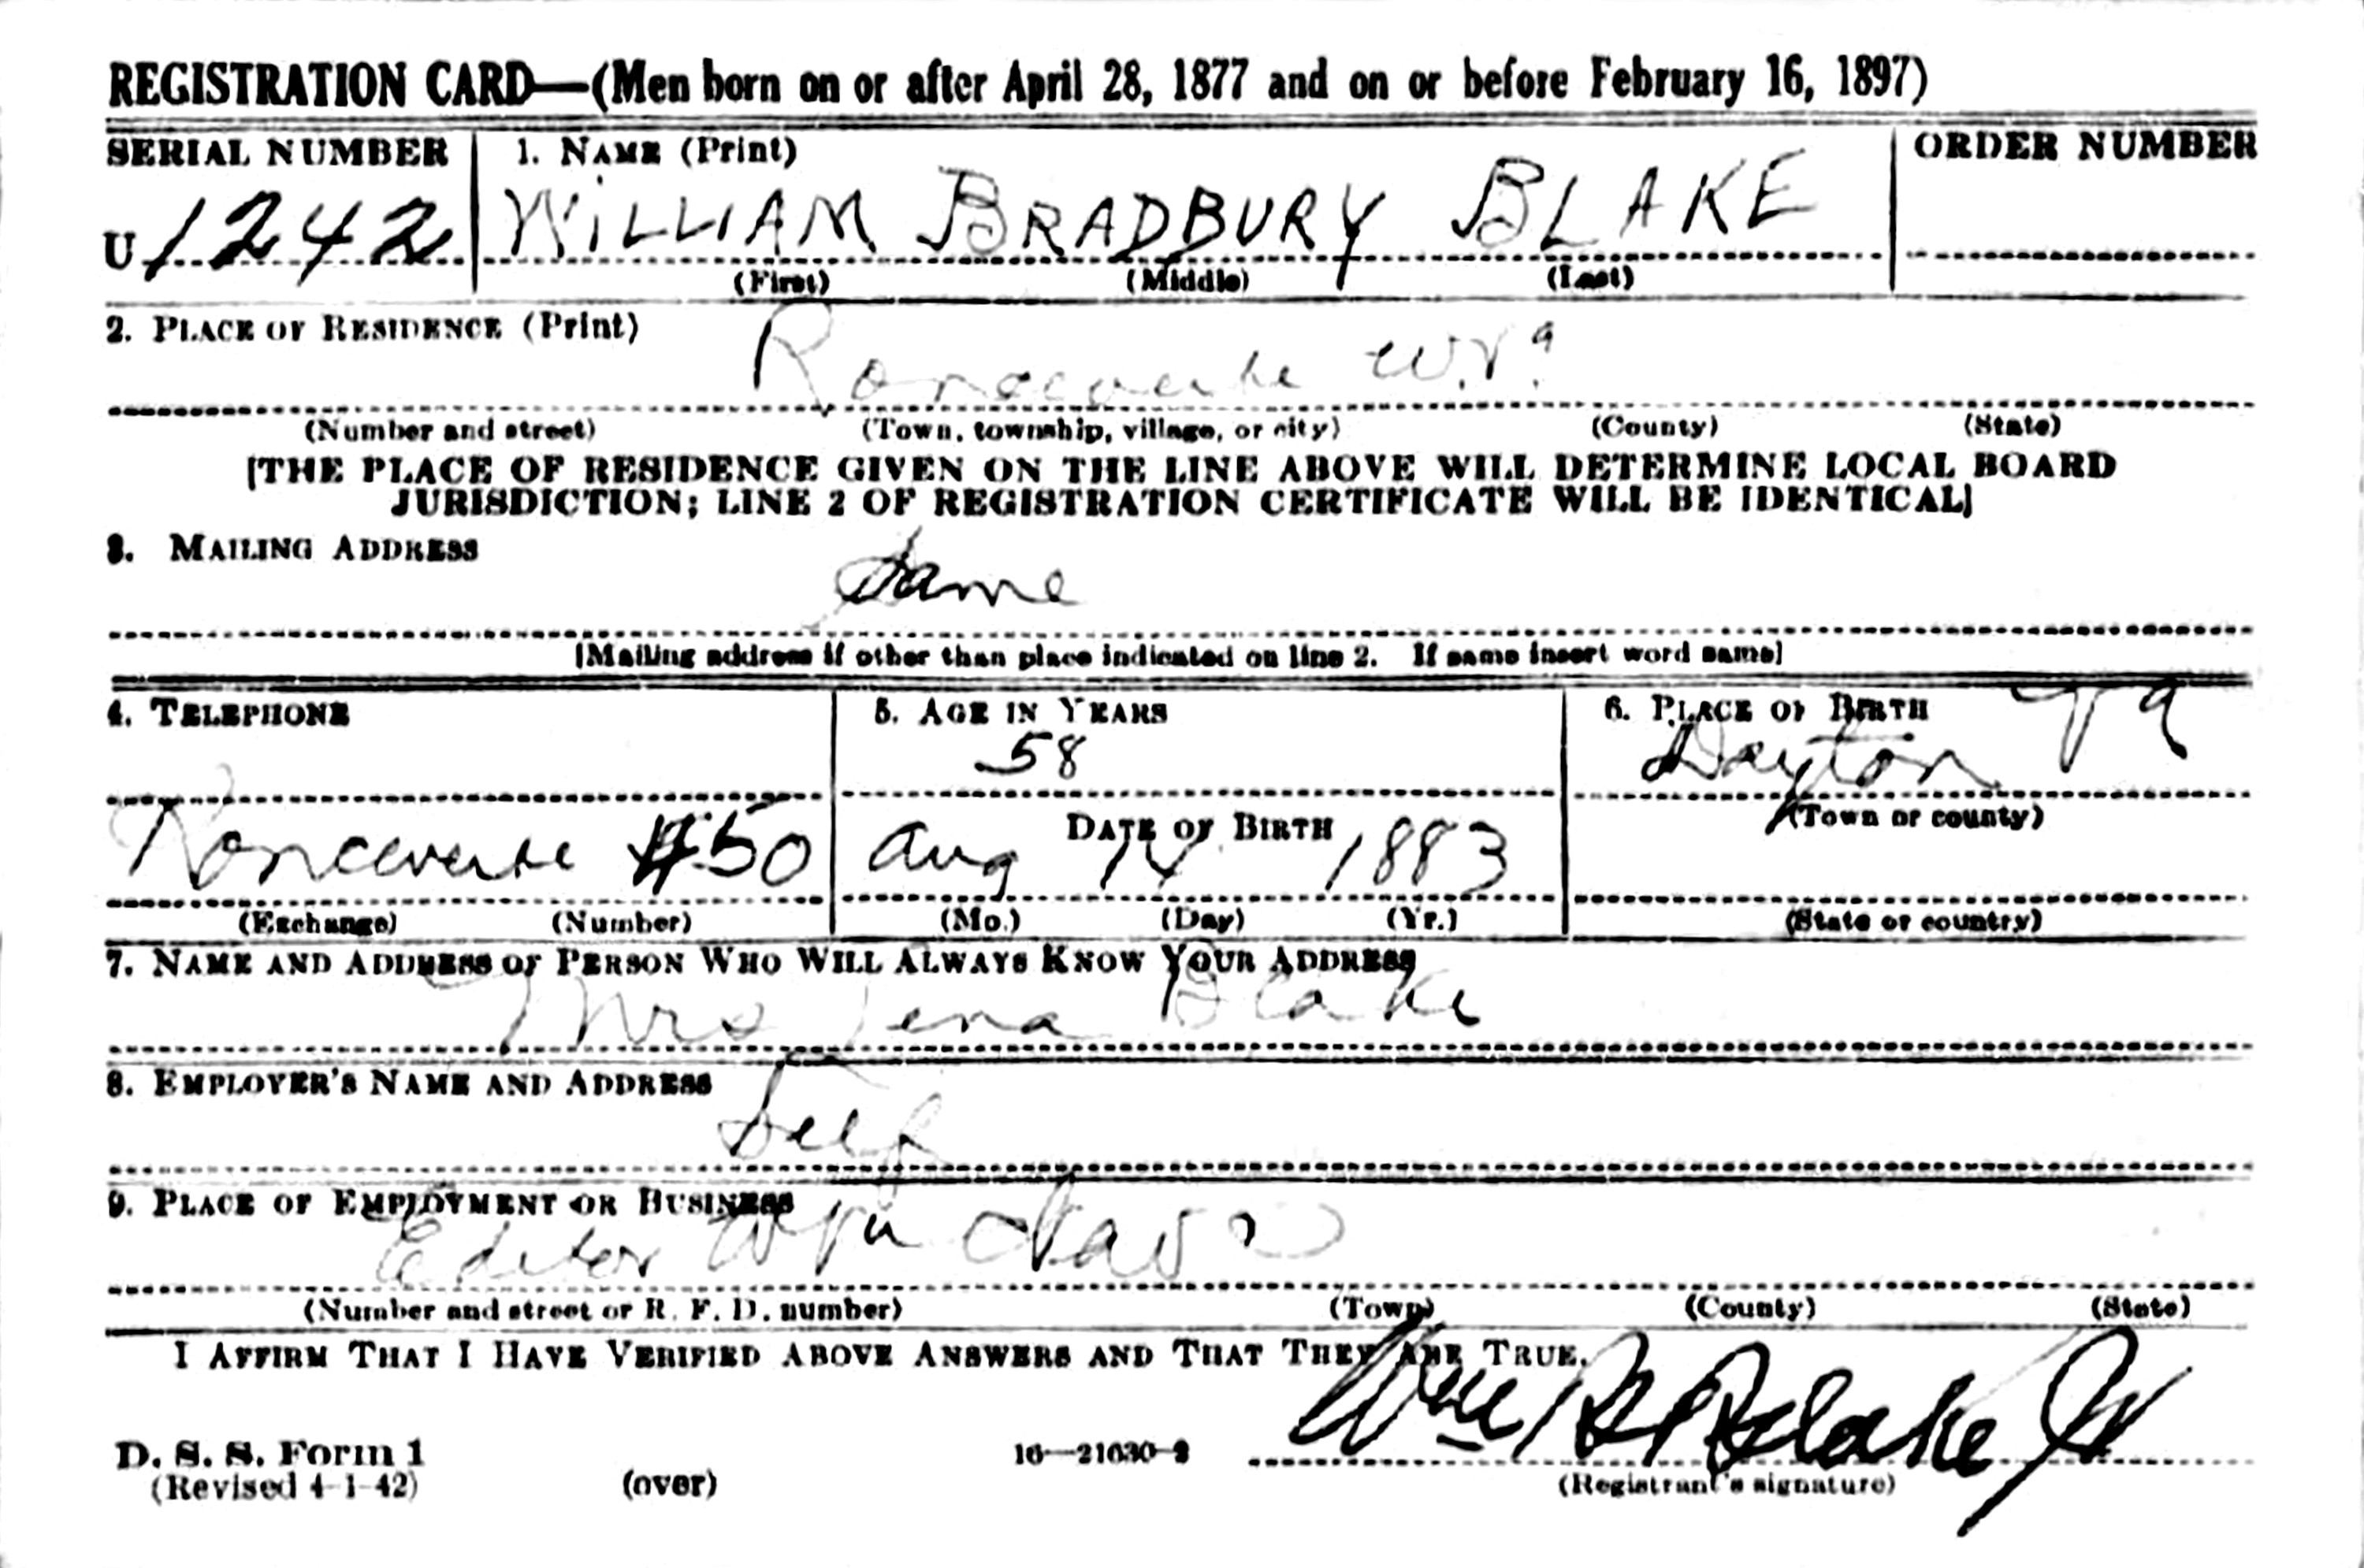 REGISTRATION CARD—(Men born on or after April 28, 1877 and on or before February 16, 1897)
SERIAL NUMBER
1. NAME (Print)
ORDER NUMBER
U 1242
WILLIAM BRADBURY BLAKE
(First) (Middle) (Last)
2. PLACE OF RESIDENCE (Print)
Ronceverte W.Va.
(Number and street) (Town, township, village, or city) (County) (State)
[THE PLACE OF RESIDENCE GIVEN ON THE LINE ABOVE WILL DETERMINE LOCAL BOARD
JURISDICTION; LINE 2 OF REGISTRATION CERTIFICATE WILL BE IDENTICAL]
3. MAILING ADDRESS
Same
[Mailing address if other than place indicated on line 2. If same insert word same]
4. TELEPHONE
5. AGE IN YEARS
6. PLACE OF BIRTH
58
Dayton Va
(Town or county)
DATE OF BIRTH
Ronceverte #50
Aug 14 1883
(Exchange) (Number)
(Mo.) (Day) (Yr.)
(State or country)
7. NAME AND ADDRESS OF PERSON WHO WILL ALWAYS KNOW YOUR ADDRESS
Mrs Blake
8. EMPLOYER'S NAME AND ADDRESS
Self
9. PLACE OF EMPLOYMENT OR BUSINESS
Editor W Va
(Number and street or R. F. D. number) (Town) (County) (State)
I AFFIRM THAT I HAVE VERIFIED ABOVE ANSWERS AND THAT THEY ARE TRUE.
Wm B Blake Jr
D. S. S. Form 1
(Revised 4-1-42)
(over)
16—21630-2
(Registrant's signature)